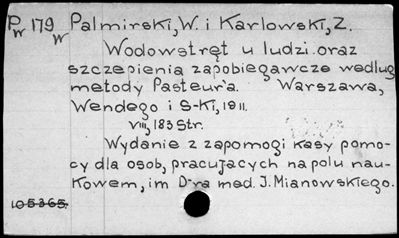 Pw 179w Palmirski, W. i Karlowski, Z.
Wodowstręt u ludzi oraz
szczepienia zapobiegawcze według
metody Pasteur'a. Warszawa,
Wendego i S-ki, 1911.
VIII, 183 Str.
Wydanie z zapomogi kasy pomo-
cy dla osob, pracujących na polu nau-
kowem, im D-ra med. J. Mianowskiego.
105365.